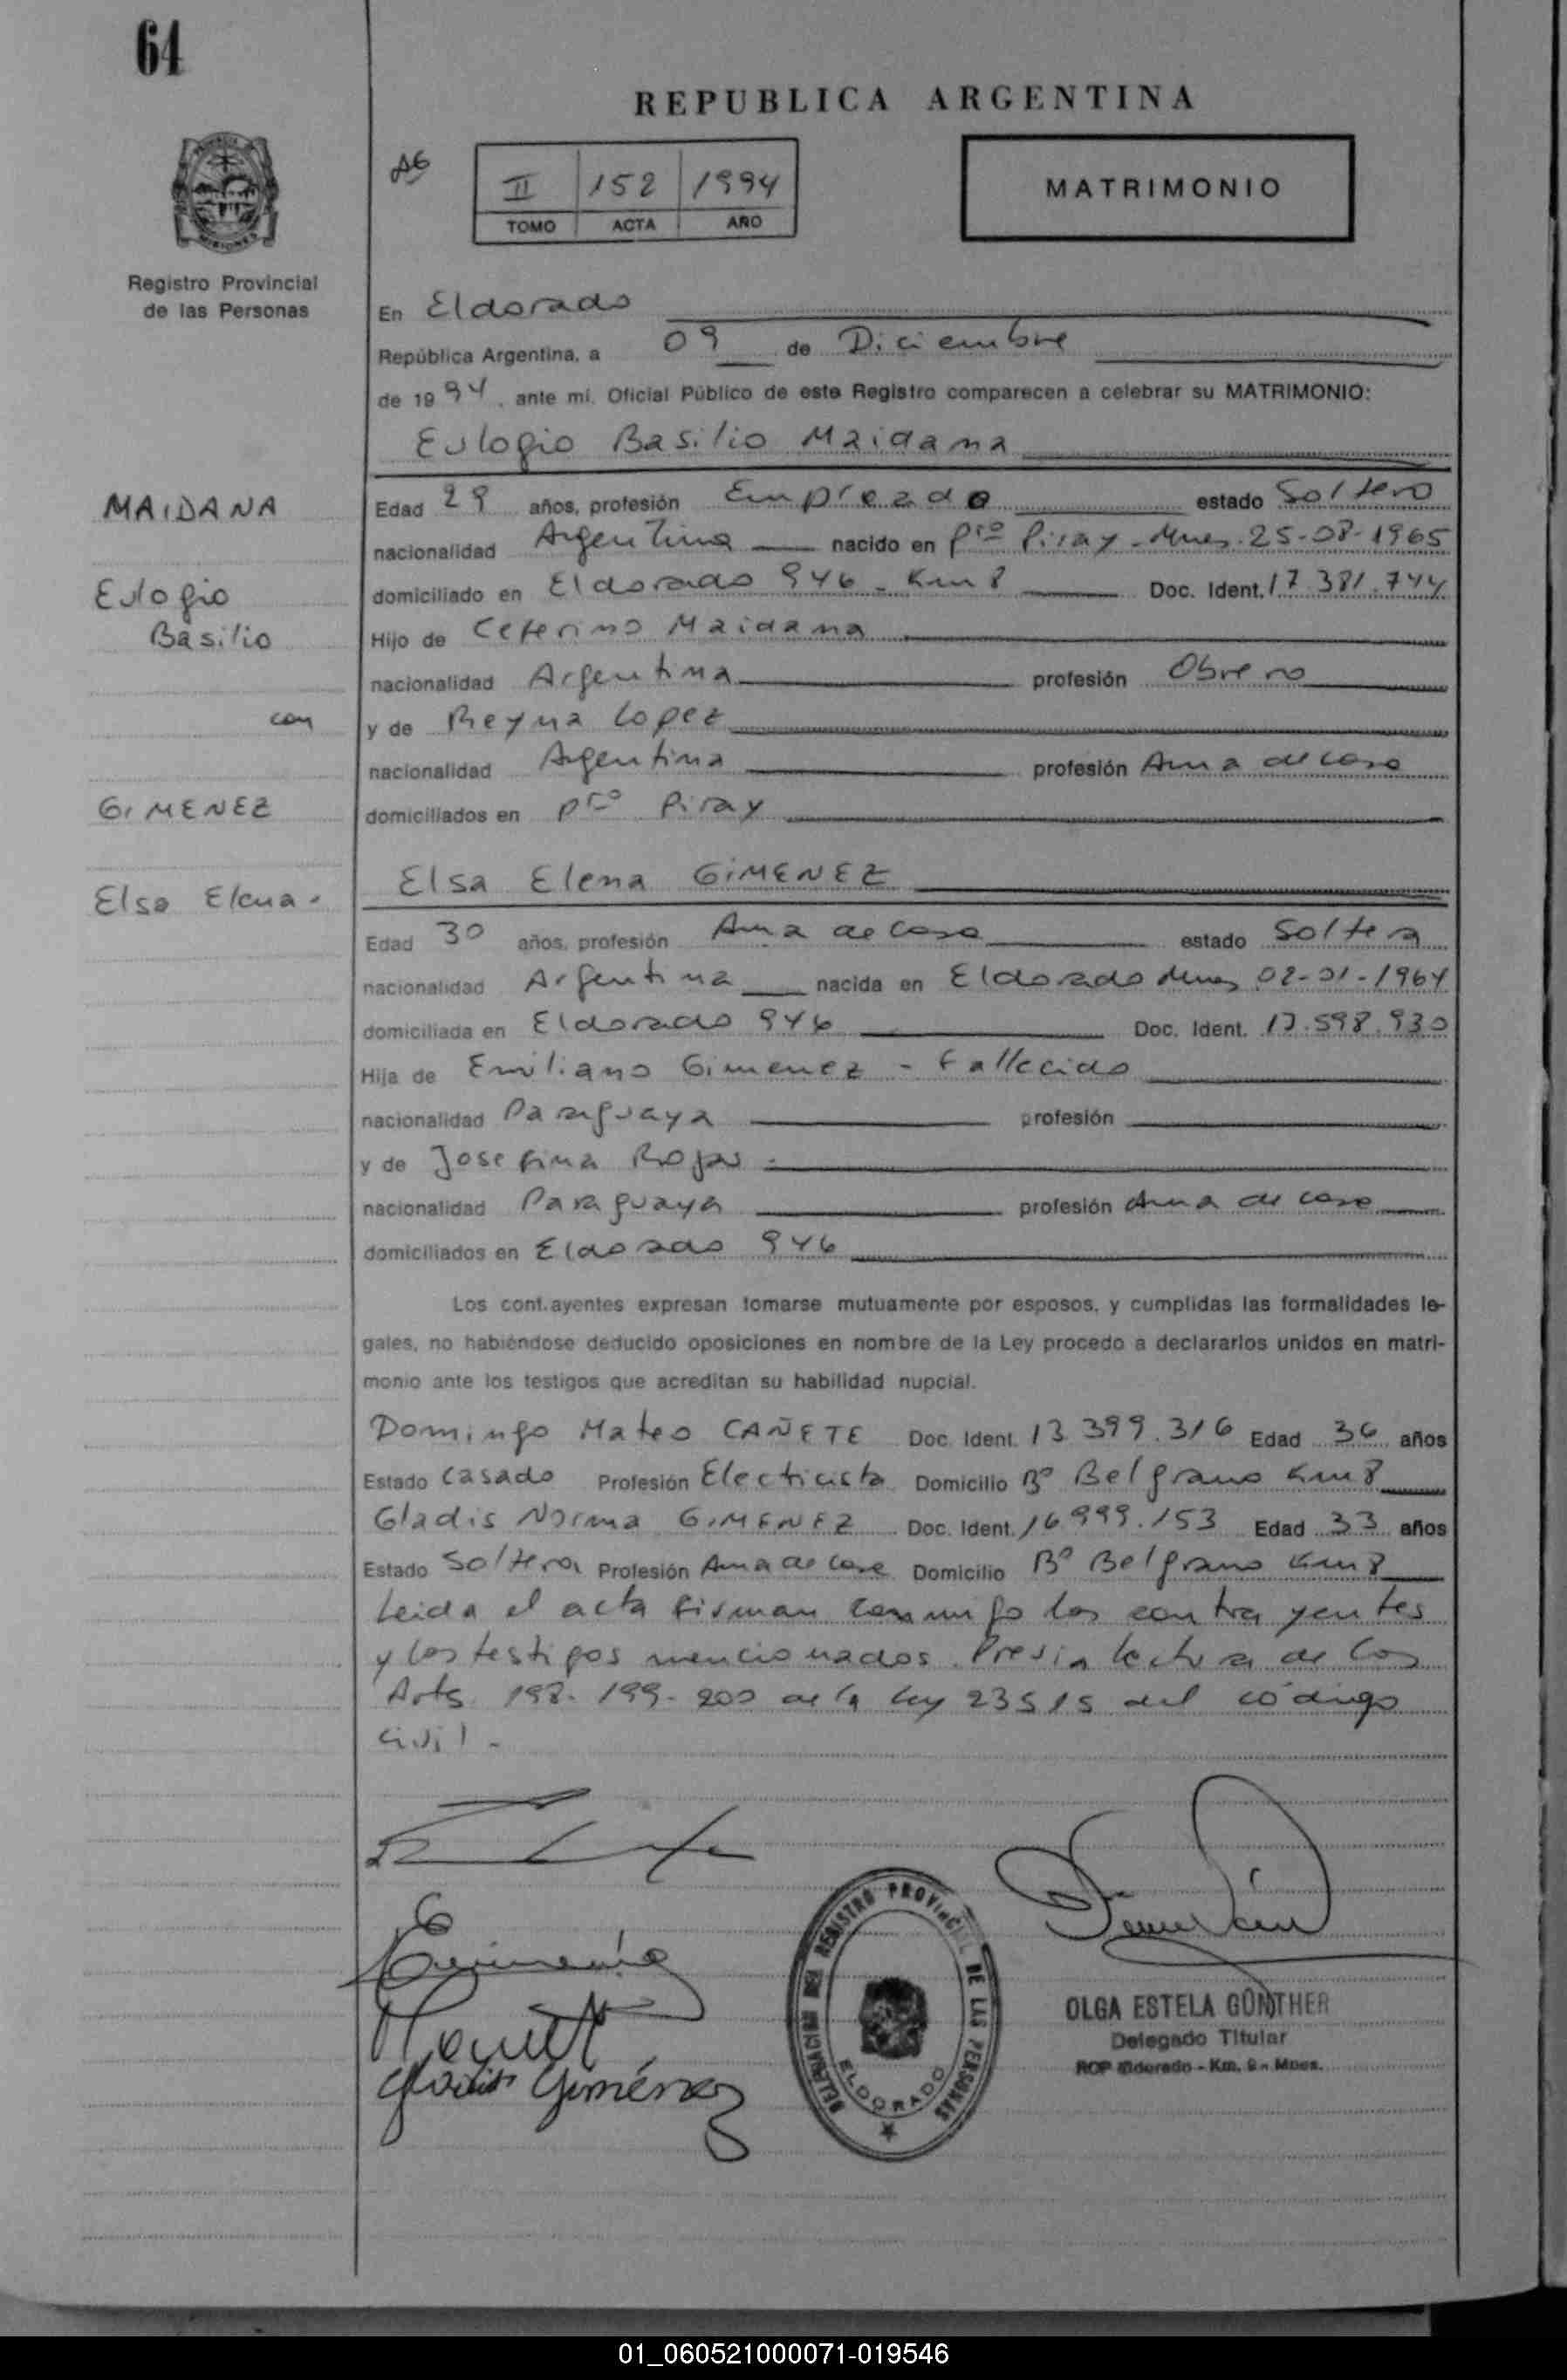 64
REPUBLICA ARGENTINA
MISIONES
Registro Provincial
de las Personas
II 152 1994
TOMO ACTA AÑO
MATRIMONIO
En Eldorado
República Argentina, a 09 de Diciembre
de 1994, ante mí, Oficial Público de este Registro comparecen a celebrar su MATRIMONIO:
Eulogio Basilio Maidana
MAIDANA
Eulogio
Basilio
con
GIMENEZ
Elsa Elena.
Edad 29 años, profesión Empleado estado Soltero
nacionalidad Argentina nacido en Pto Piray - Mnes. 25-08-1965
domiciliado en Eldorado 946 - Km 8 Doc. Ident. 17.381.744
Hijo de Ceferino Maidana
nacionalidad Argentina profesión Obrero
y de Reyna Lopez
nacionalidad Argentina profesión Ama de casa
domiciliados en Pto Piray
Elsa Elena GiMENEZ
Edad 30 años, profesión Ama de casa estado Soltera
nacionalidad Argentina nacida en Eldorado Mnes 02-01-1964
domiciliada en Eldorado 946 Doc. Ident. 17.598.930
Hija de Emiliano Gimenez - Fallecido
nacionalidad Paraguaya profesión
y de Josefina Rojas -
nacionalidad Paraguaya profesión Ama de casa
domiciliados en Eldorado 946
Los contrayentes expresan tomarse mutuamente por esposos, y cumplidas las formalidades le-
gales, no habiéndose deducido oposiciones en nombre de la Ley procedo a declararlos unidos en matri-
monio ante los testigos que acreditan su habilidad nupcial.
Domingo Mateo CAÑETE Doc. Ident. 13.399.316 Edad 36 años
Estado Casado Profesión Electicista Domicilio Bº Belgrano Km 8
Gladis Norma GIMENEZ Doc. Ident. 16.999.153 Edad 33 años
Estado Soltera Profesión Ama de casa Domicilio Bº Belgrano Km 8
Leida el acta firman conmigo los contrayentes
y los testigos mencionados. Previa lectura de los
Arts. 198-199-200 de la ley 23515 del código
civil.-
Gladis Giménez
DELEGACION DEL REGISTRO PROVINCIAL DE LAS PERSONAS
ELDORADO
OLGA ESTELA GÜNTHER
Delegado Titular
ROP Eldorado - Km. 9 - Mnes.
01_060521000071-019546